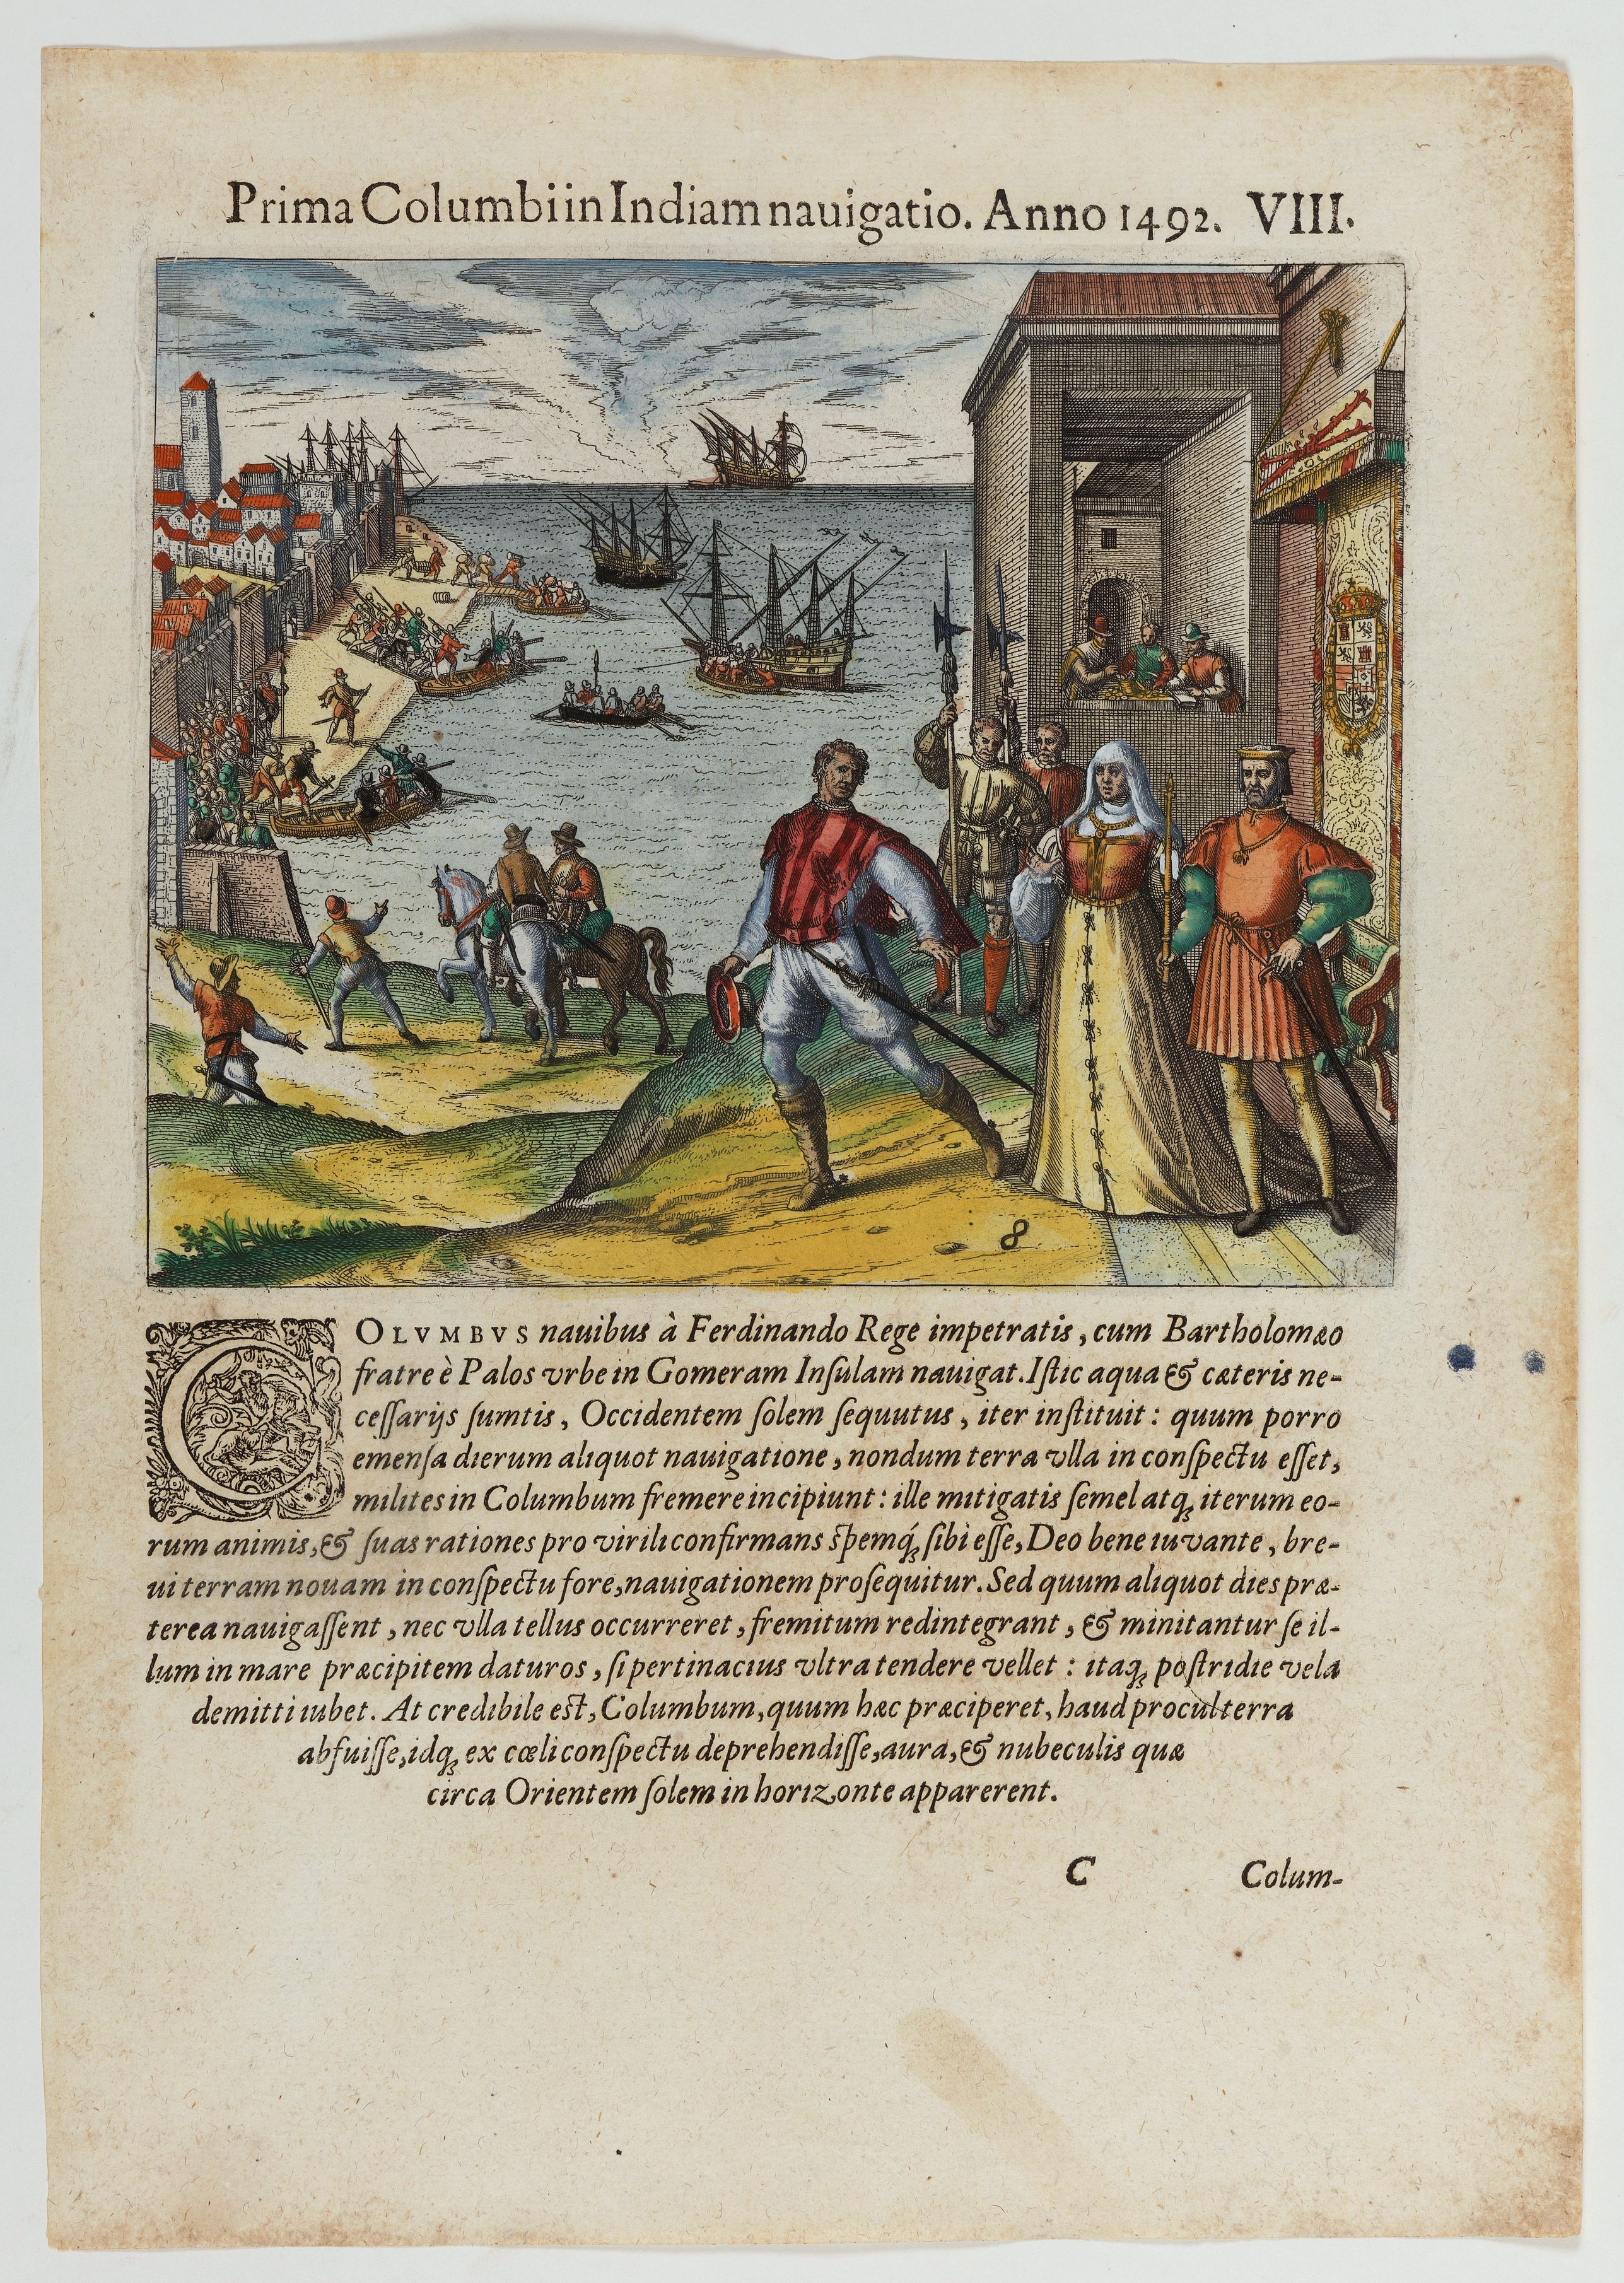 Prima Columbi in Indiam nauigatio. Anno 1492. VIII.
8
COLVMBVS nauibus à Ferdinando Rege impetratis, cum Bartholomæo
fratre è Palos vrbe in Gomeram Inſulam nauigat. Iſtic aqua & cæteris ne-
ceſſarijs ſumtis, Occidentem ſolem ſequutus, iter inſtituit: quum porro
emenſa dierum aliquot nauigatione, nondum terra vlla in conſpectu eſſet,
milites in Columbum fremere incipiunt: ille mitigatis ſemel atq; iterum eo-
rum animis, & ſuas rationes pro virili confirmans ſpemq́; ſibi eſſe, Deo bene iuvante, bre-
ui terram nouam in conſpectu fore, nauigationem proſequitur. Sed quum aliquot dies præ-
terea nauigaſſent, nec vlla tellus occurreret, fremitum redintegrant, & minitantur ſe il-
lum in mare præcipitem daturos, ſi pertinacius vltra tendere vellet: itaq; poſtridie vela
demitti iubet. At credibile eſt, Columbum, quum hæc præciperet, haud procul terra
abfuiſſe, idq; ex cœli conſpectu deprehendiſſe, aura, & nubeculis quæ
circa Orientem ſolem in horizonte apparerent.
C Colum-